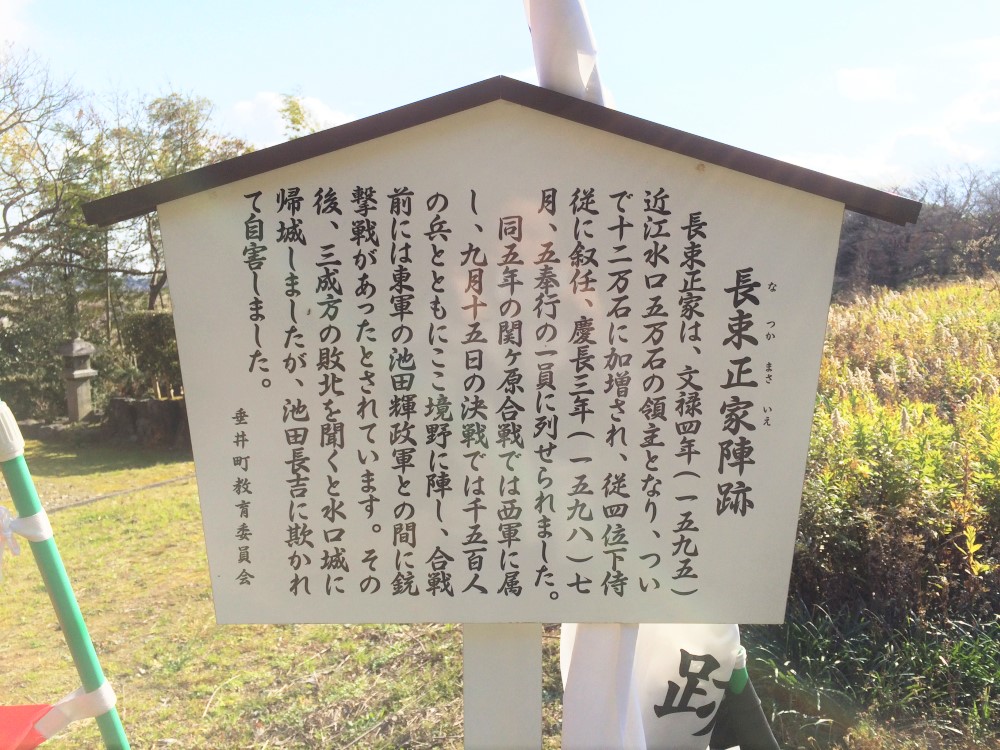 長束正家陣跡
なつかまさいえ
長束正家は、文禄四年(一五九五)
近江水口五万石の領主となり、つい
で十二万石に加増され、従四位下侍
従に叙任、慶長三年(一五九八)七
月、五奉行の一員に列せられました。
同五年の関ヶ原合戦では西軍に属
し、九月十五日の決戦では千五百人
の兵とともにここ境野に陣し、合戦
前には東軍の池田輝政軍との間に銃
撃戦があったとされています。その
後、三成方の敗北を聞くと水口城に
帰城しましたが、池田長吉に欺かれ
て自害しました。
垂井町教育委員会
跡